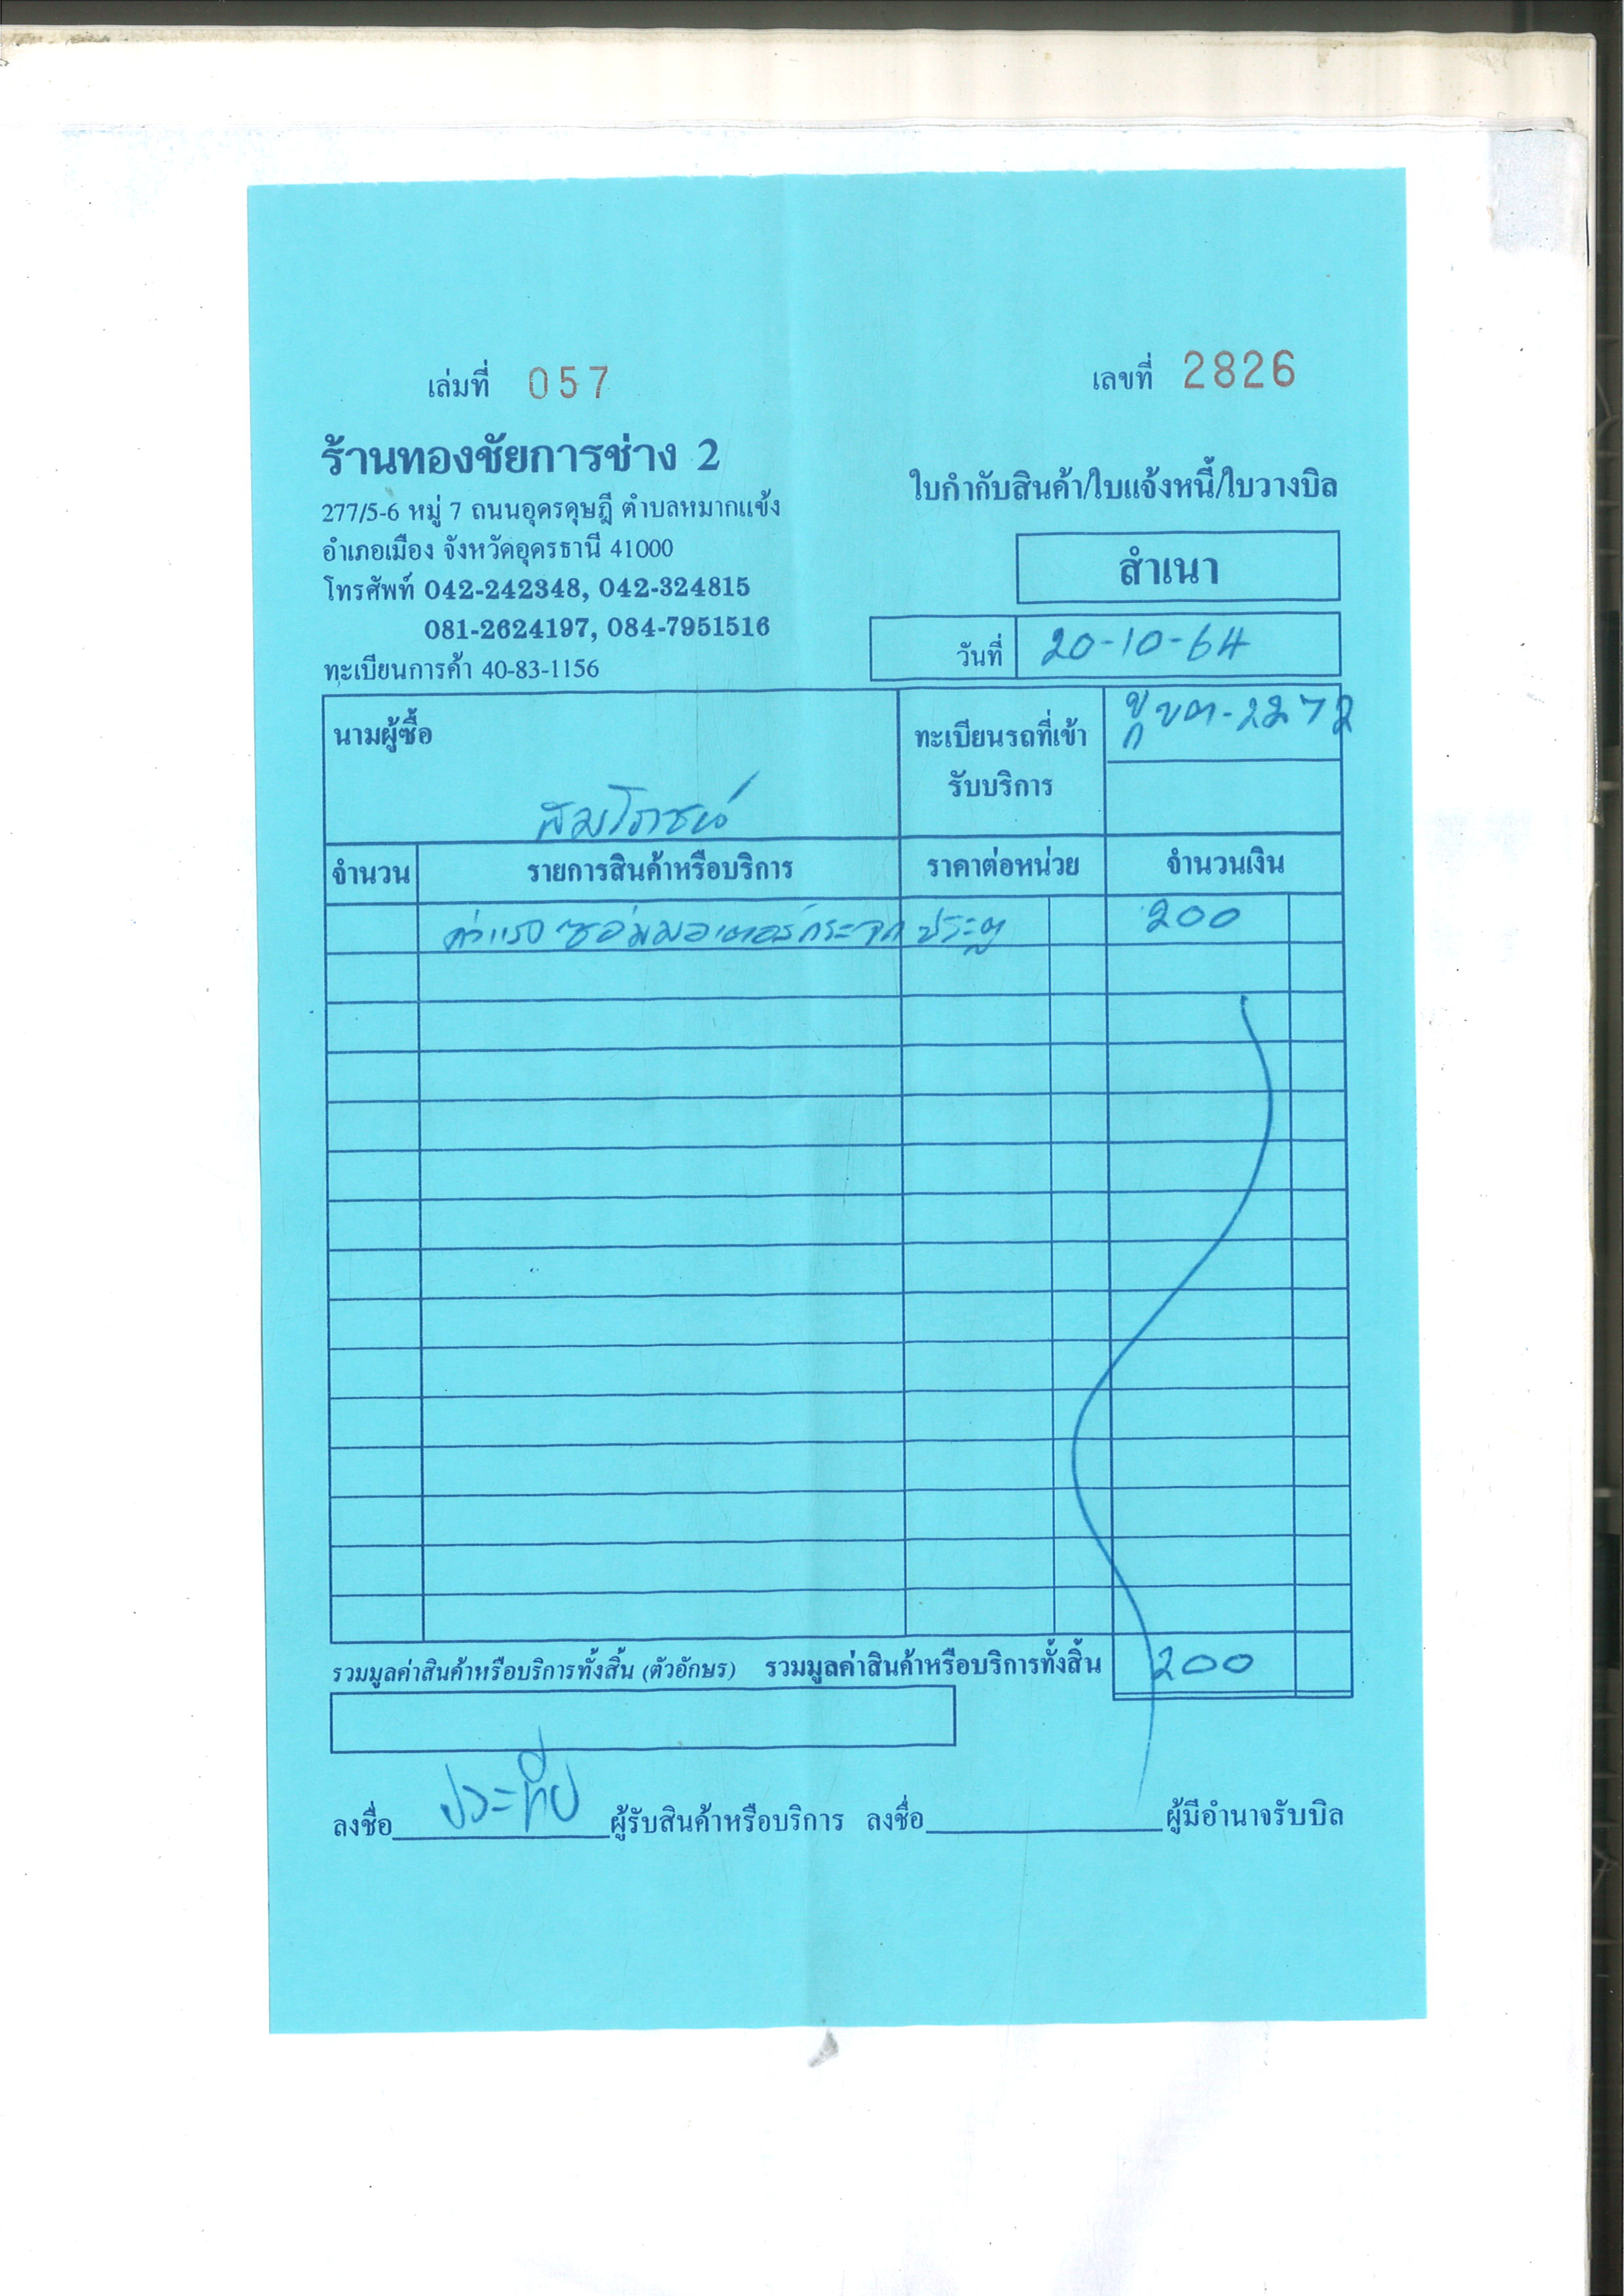 เล่มที่ 057
เลขที่ 2826
ร้านทองชัยการช่าง 2
277/5-6 หมู่ 7 ถนนอุดรดุษฎี ตำบลหมากแข้ง
อำเภอเมือง จังหวัดอุดรธานี 41000
โทรศัพท์ 042-242348, 042-324815
081-2624197, 084-7951516
ทะเบียนการค้า 40-83-1156
ใบกำกับสินค้า/ใบแจ้งหนี้/ใบวางบิล
สำเนา
วันที่ 20-10-64
นามผู้ซื้อ
ทะเบียนรถที่เข้า
รับบริการ
2272
จำนวน รายการสินค้าหรือบริการ ราคาต่อหน่วย จำนวนเงิน
ค่าแรงซ่อมมอเตอร์กระจกประตู 200
รวมมูลค่าสินค้าหรือบริการทั้งสิ้น (ตัวอักษร) รวมมูลค่าสินค้าหรือบริการทั้งสิ้น 200
ลงชื่อ ประทีป ผู้รับสินค้าหรือบริการ ลงชื่อ ผู้มีอำนาจรับบิล